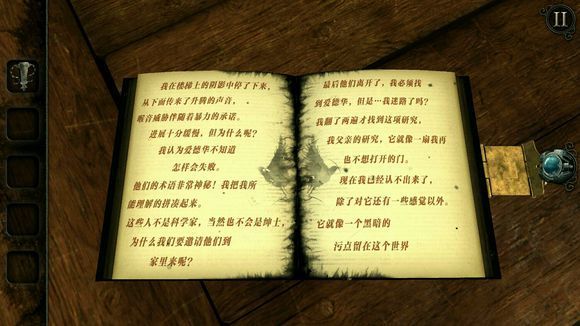 我在楼梯上的阴影中停了下来，
从下面传来了升腾的声音，
嗓音威胁伴随着暴力的承诺。
进展十分缓慢，但为什么呢？
我认为爱德华不知道
怎样会失败。
他们的术语非常神秘！我把我所
能理解的拼凑起来。
这些人不是科学家，当然也不会是绅士，
为什么我们要邀请他们到
家里来呢？
最后他们离开了，我必须找
到爱德华，但是…我迷路了吗？
我翻了两遍才找到这项研究，
我父亲的研究，它就像一扇我再
也不想打开的门。
现在我已经认不出来了，
除了对它还有一些感觉以外。
它就像一个黑暗的
污点留在这个世界